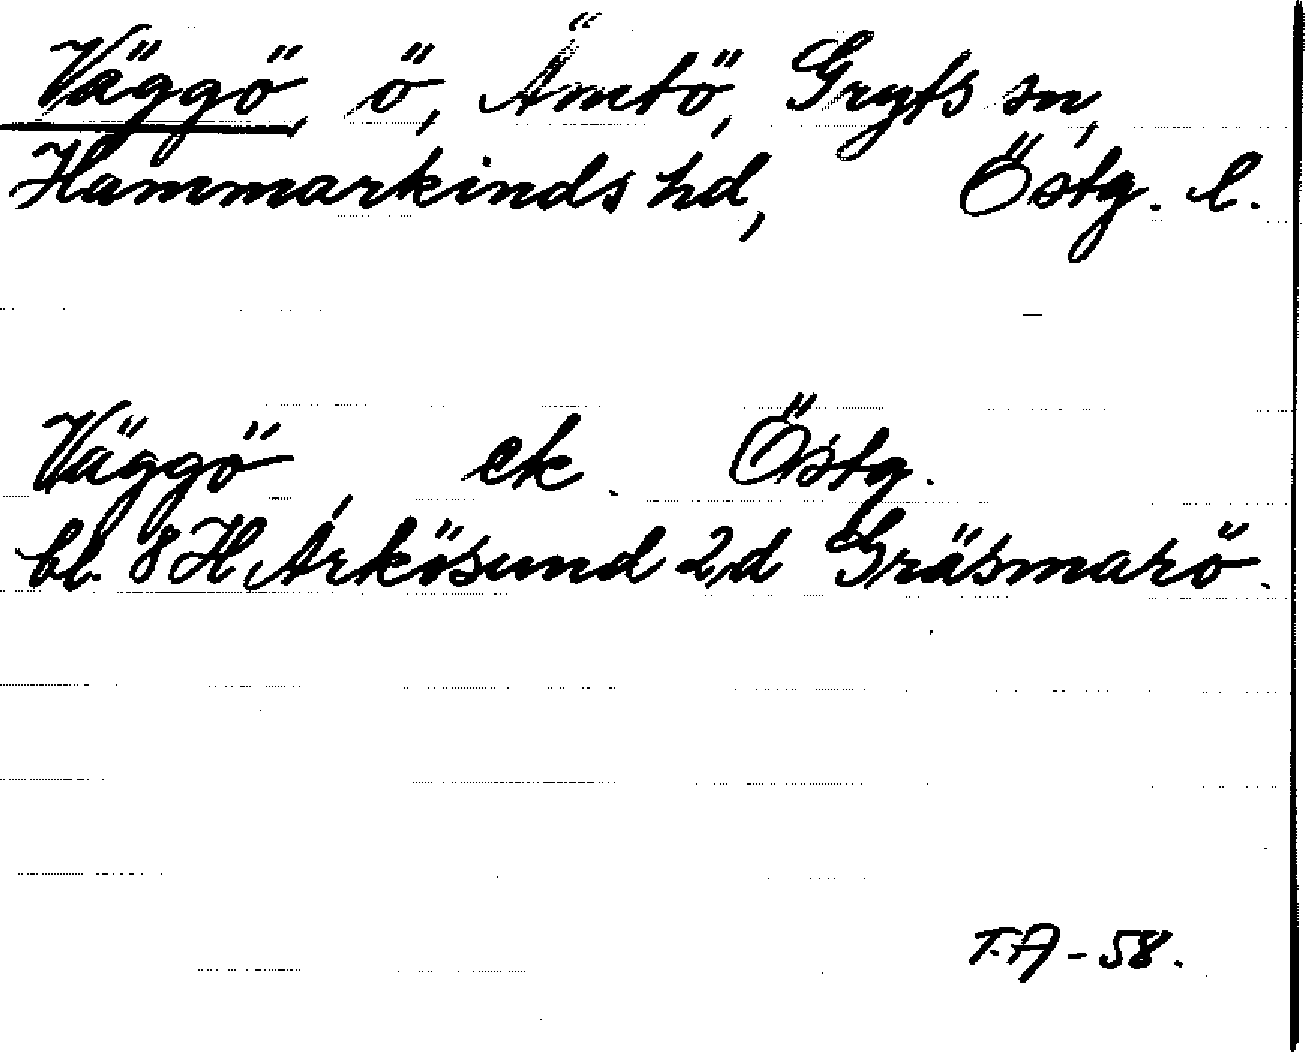 Väggö, ö, Ämtö, Gryts sn,
Hammarkinds hd, Östg. l.
Väggö ek. Östg.
bl. 8 H, Arkösund 2,d Gräsmarö.
T.A-58.